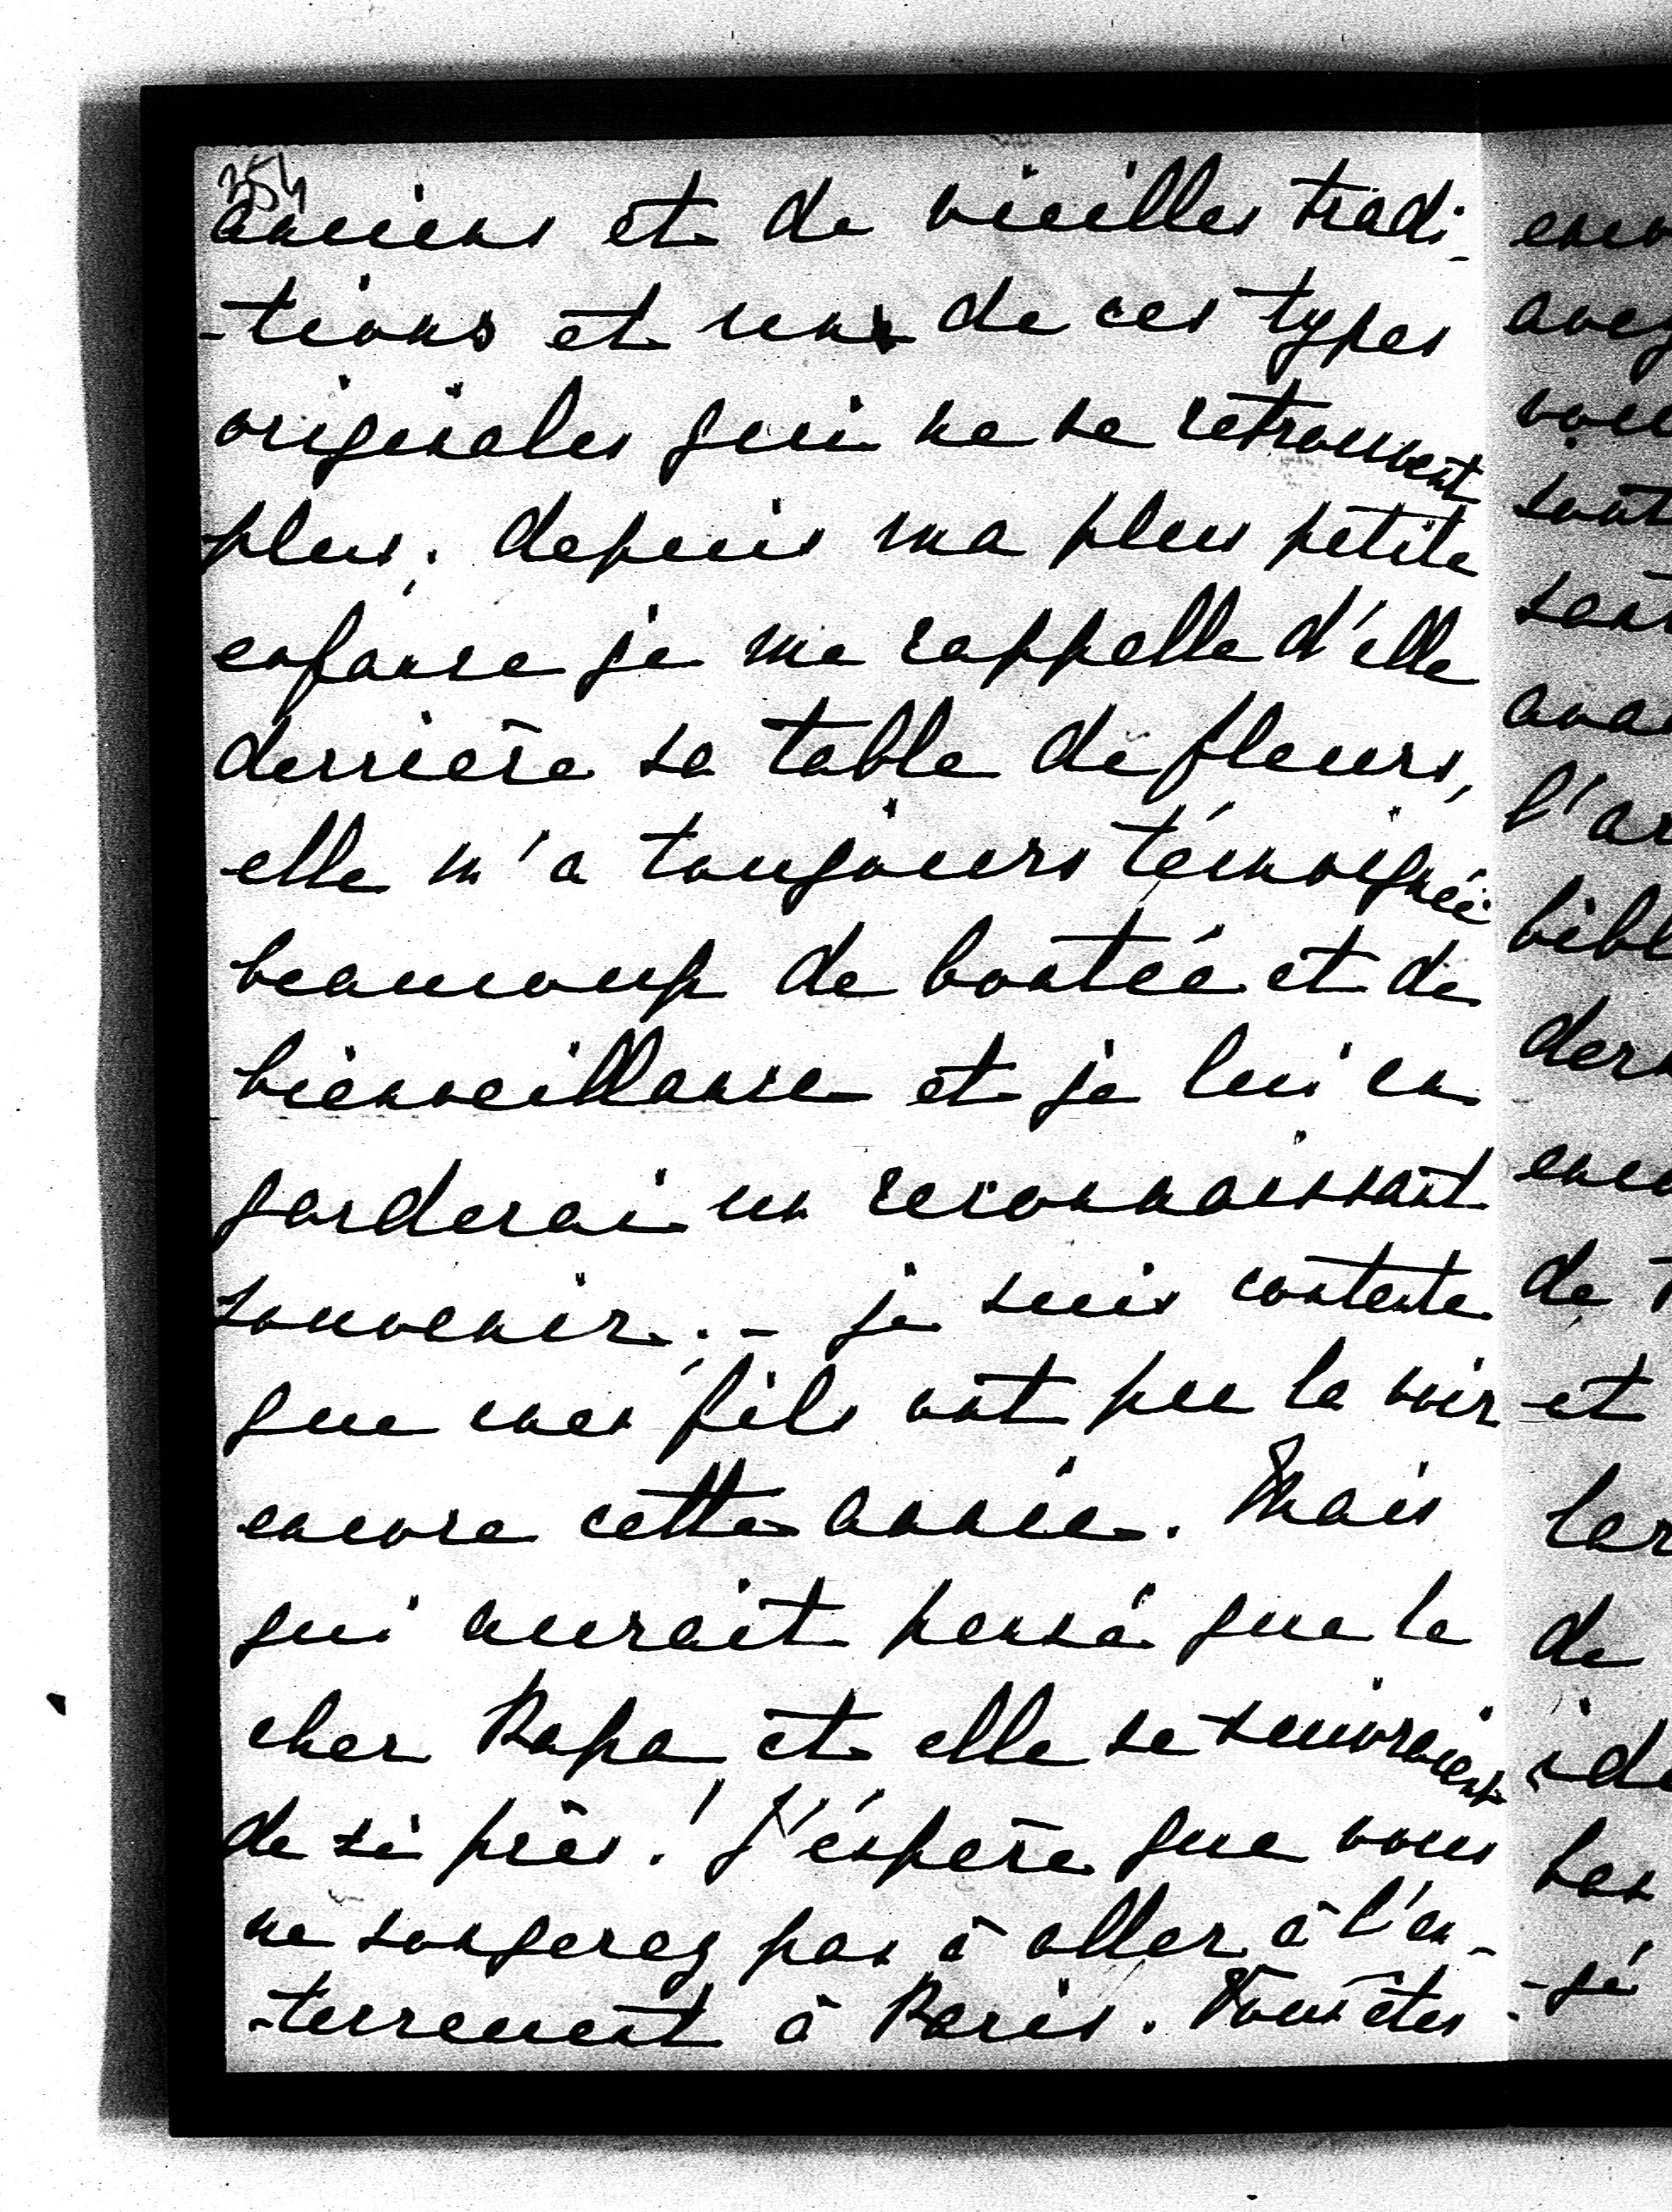 354
anciens et de vieilles tradi-
-tions et une de ces types
originales qui ne se retrouvent
plus; depuis ma plus petite
enfance je me rappelle d'elle
derrière sa table de fleurs,
elle m'a toujours témoignée
beaucoup de bontée et de
bienveillance et je lui en
garderai un reconnaissant
souvenir; - je suis contente
que mes fils ont pu la voir
encore cette année. Mais
qui aurait pensé que le
cher Papa et elle se suivraient
de si près! J'éspère que vous
ne songerez pas à aller à l'en-
-terrement à Paris. Vous êtes
avez
l'ar
bibl
de
et
de